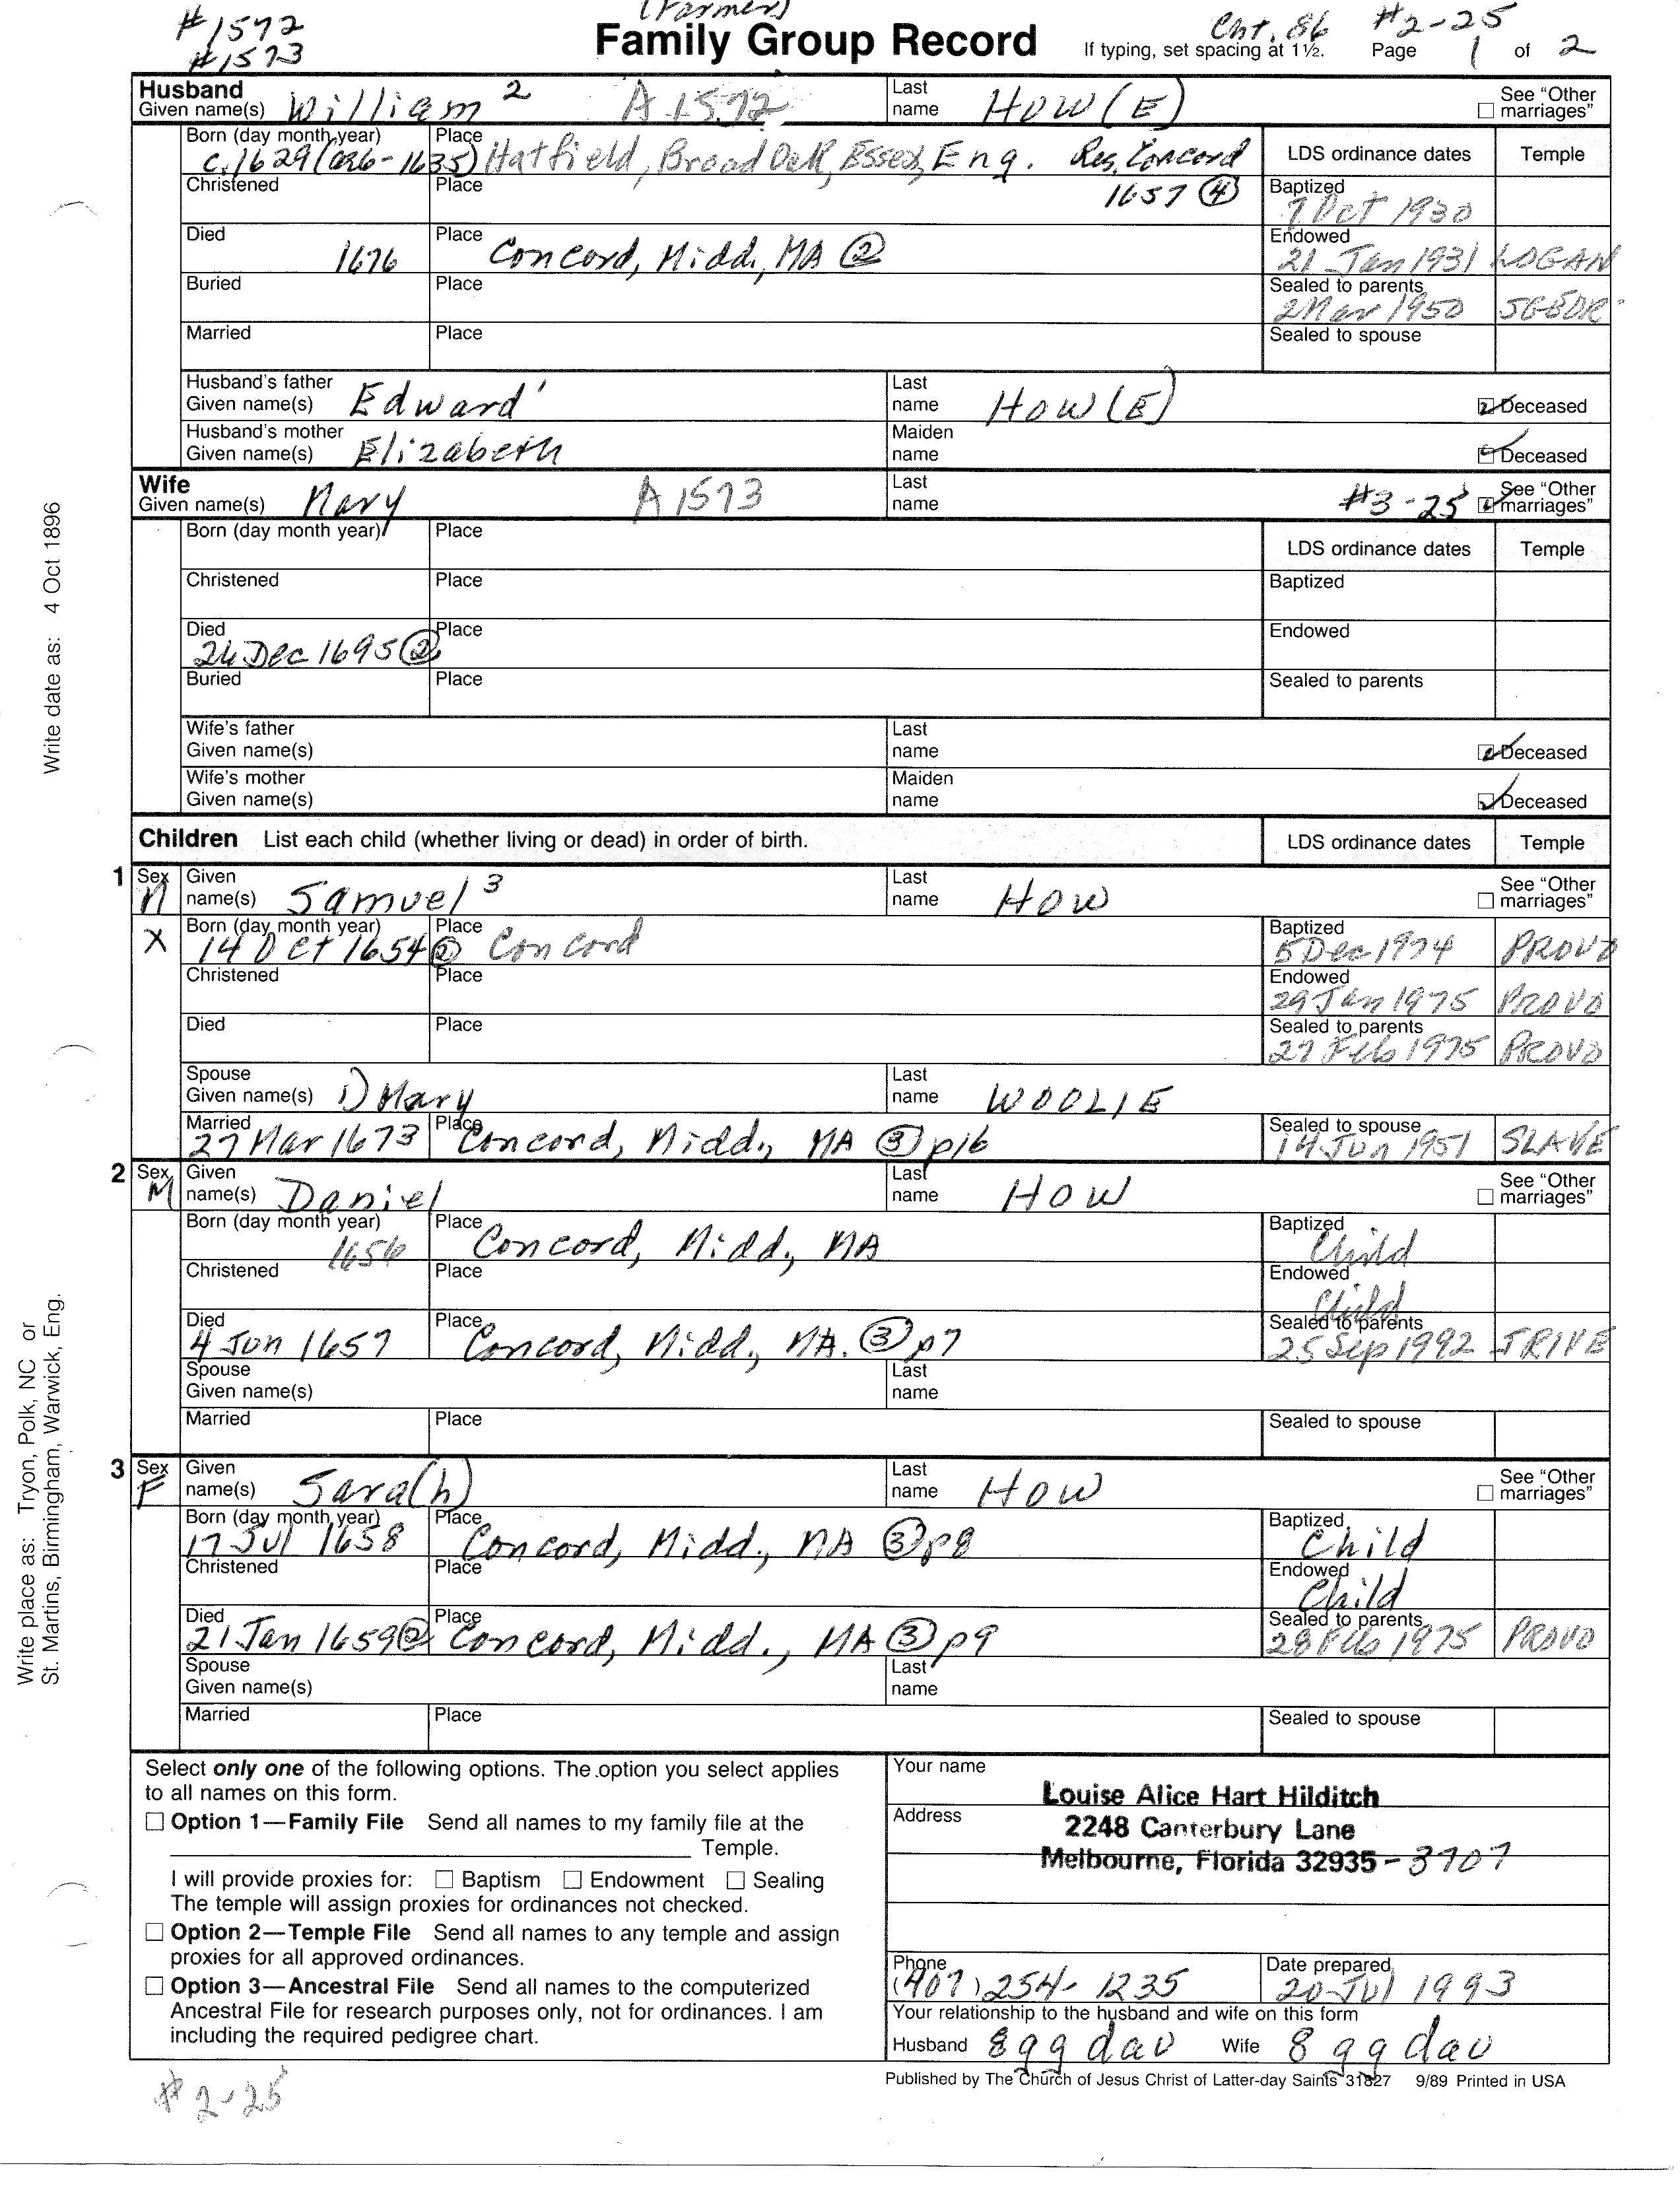 (Farmer)
#1572
#1573
Family Group Record
Cht. 86 #2-25
If typing, set spacing at 1½. Page 1 of 2
Husband
Given name(s) William 2 A 1572
Last name HOW(E)
See "Other marriages"
Born (day month year) c. 1629 (1626-1635)
Place Hatfield, Broad Oak, Essex, Eng. Res. Concord 1657 ④
LDS ordinance dates Temple
Christened Place
Baptized 7 Oct 1930
Died 1676
Place Concord, Midd., MA ②
Endowed 21 Jan 1931 LOGAN
Buried Place
Sealed to parents 2 Mar 1950
Married Place
Sealed to spouse
Husband's father
Given name(s) Edward 1
Last name HOW(E)
Deceased
Husband's mother
Given name(s) Elizabeth
Maiden name
Deceased
Wife
Given name(s) Mary A 1573
Last name
#3-25 See "Other marriages"
Born (day month year) Place
LDS ordinance dates Temple
Christened Place
Baptized
Died 26 Dec 1695 ②
Place
Endowed
Buried Place
Sealed to parents
Wife's father
Given name(s)
Last name
Deceased
Wife's mother
Given name(s)
Maiden name
Deceased
Children List each child (whether living or dead) in order of birth.
LDS ordinance dates Temple
1 Sex M
X
Given name(s) Samuel 3
Last name HOW
See "Other marriages"
Born (day month year) 14 Oct 1654 ②
Place Concord
Baptized 5 Dec 1974 PROVO
Christened Place
Endowed 29 Jan 1975 PROVO
Died Place
Sealed to parents 27 Feb 1975 PROVO
Spouse
Given name(s) 1) Mary
Last name WOOLIE
Married 27 Mar 1673
Place Concord, Midd., MA ③ p16
Sealed to spouse 14 Jun 1951 SLAKE
2 Sex M
Given name(s) Daniel
Last name HOW
See "Other marriages"
Born (day month year) 1656
Place Concord, Midd., MA
Baptized Child
Christened Place
Endowed Child
Died 4 Jun 1657
Place Concord, Midd., MA. ③ p7
Sealed to parents 25 Sep 1992 JRIVE
Spouse
Given name(s)
Last name
Married Place
Sealed to spouse
3 Sex F
Given name(s) Sara(h)
Last name HOW
See "Other marriages"
Born (day month year) 17 Jul 1658
Place Concord, Midd., MA ③ p8
Baptized Child
Christened Place
Endowed Child
Died 21 Jan 1659 ②
Place Concord, Midd., MA ③ p9
Sealed to parents 28 Feb 1975 PROVO
Spouse
Given name(s)
Last name
Married Place
Sealed to spouse
Write date as: 4 Oct 1896
Write place as: Tryon, Polk, NC or
St. Martins, Birmingham, Warwick, Eng.
Select only one of the following options. The option you select applies
to all names on this form.
Option 1—Family File Send all names to my family file at the
Temple.
I will provide proxies for: Baptism Endowment Sealing
The temple will assign proxies for ordinances not checked.
Option 2—Temple File Send all names to any temple and assign
proxies for all approved ordinances.
Option 3—Ancestral File Send all names to the computerized
Ancestral File for research purposes only, not for ordinances. I am
including the required pedigree chart.
Your name
Louise Alice Hart Hilditch
Address
2248 Canterbury Lane
Melbourne, Florida 32935 - 3707
Phone (407) 254-1235
Date prepared 20 Jul 1993
Your relationship to the husband and wife on this form
Husband 8 gg dau Wife 8 gg dau
Published by The Church of Jesus Christ of Latter-day Saints 31827 9/89 Printed in USA
#2-25